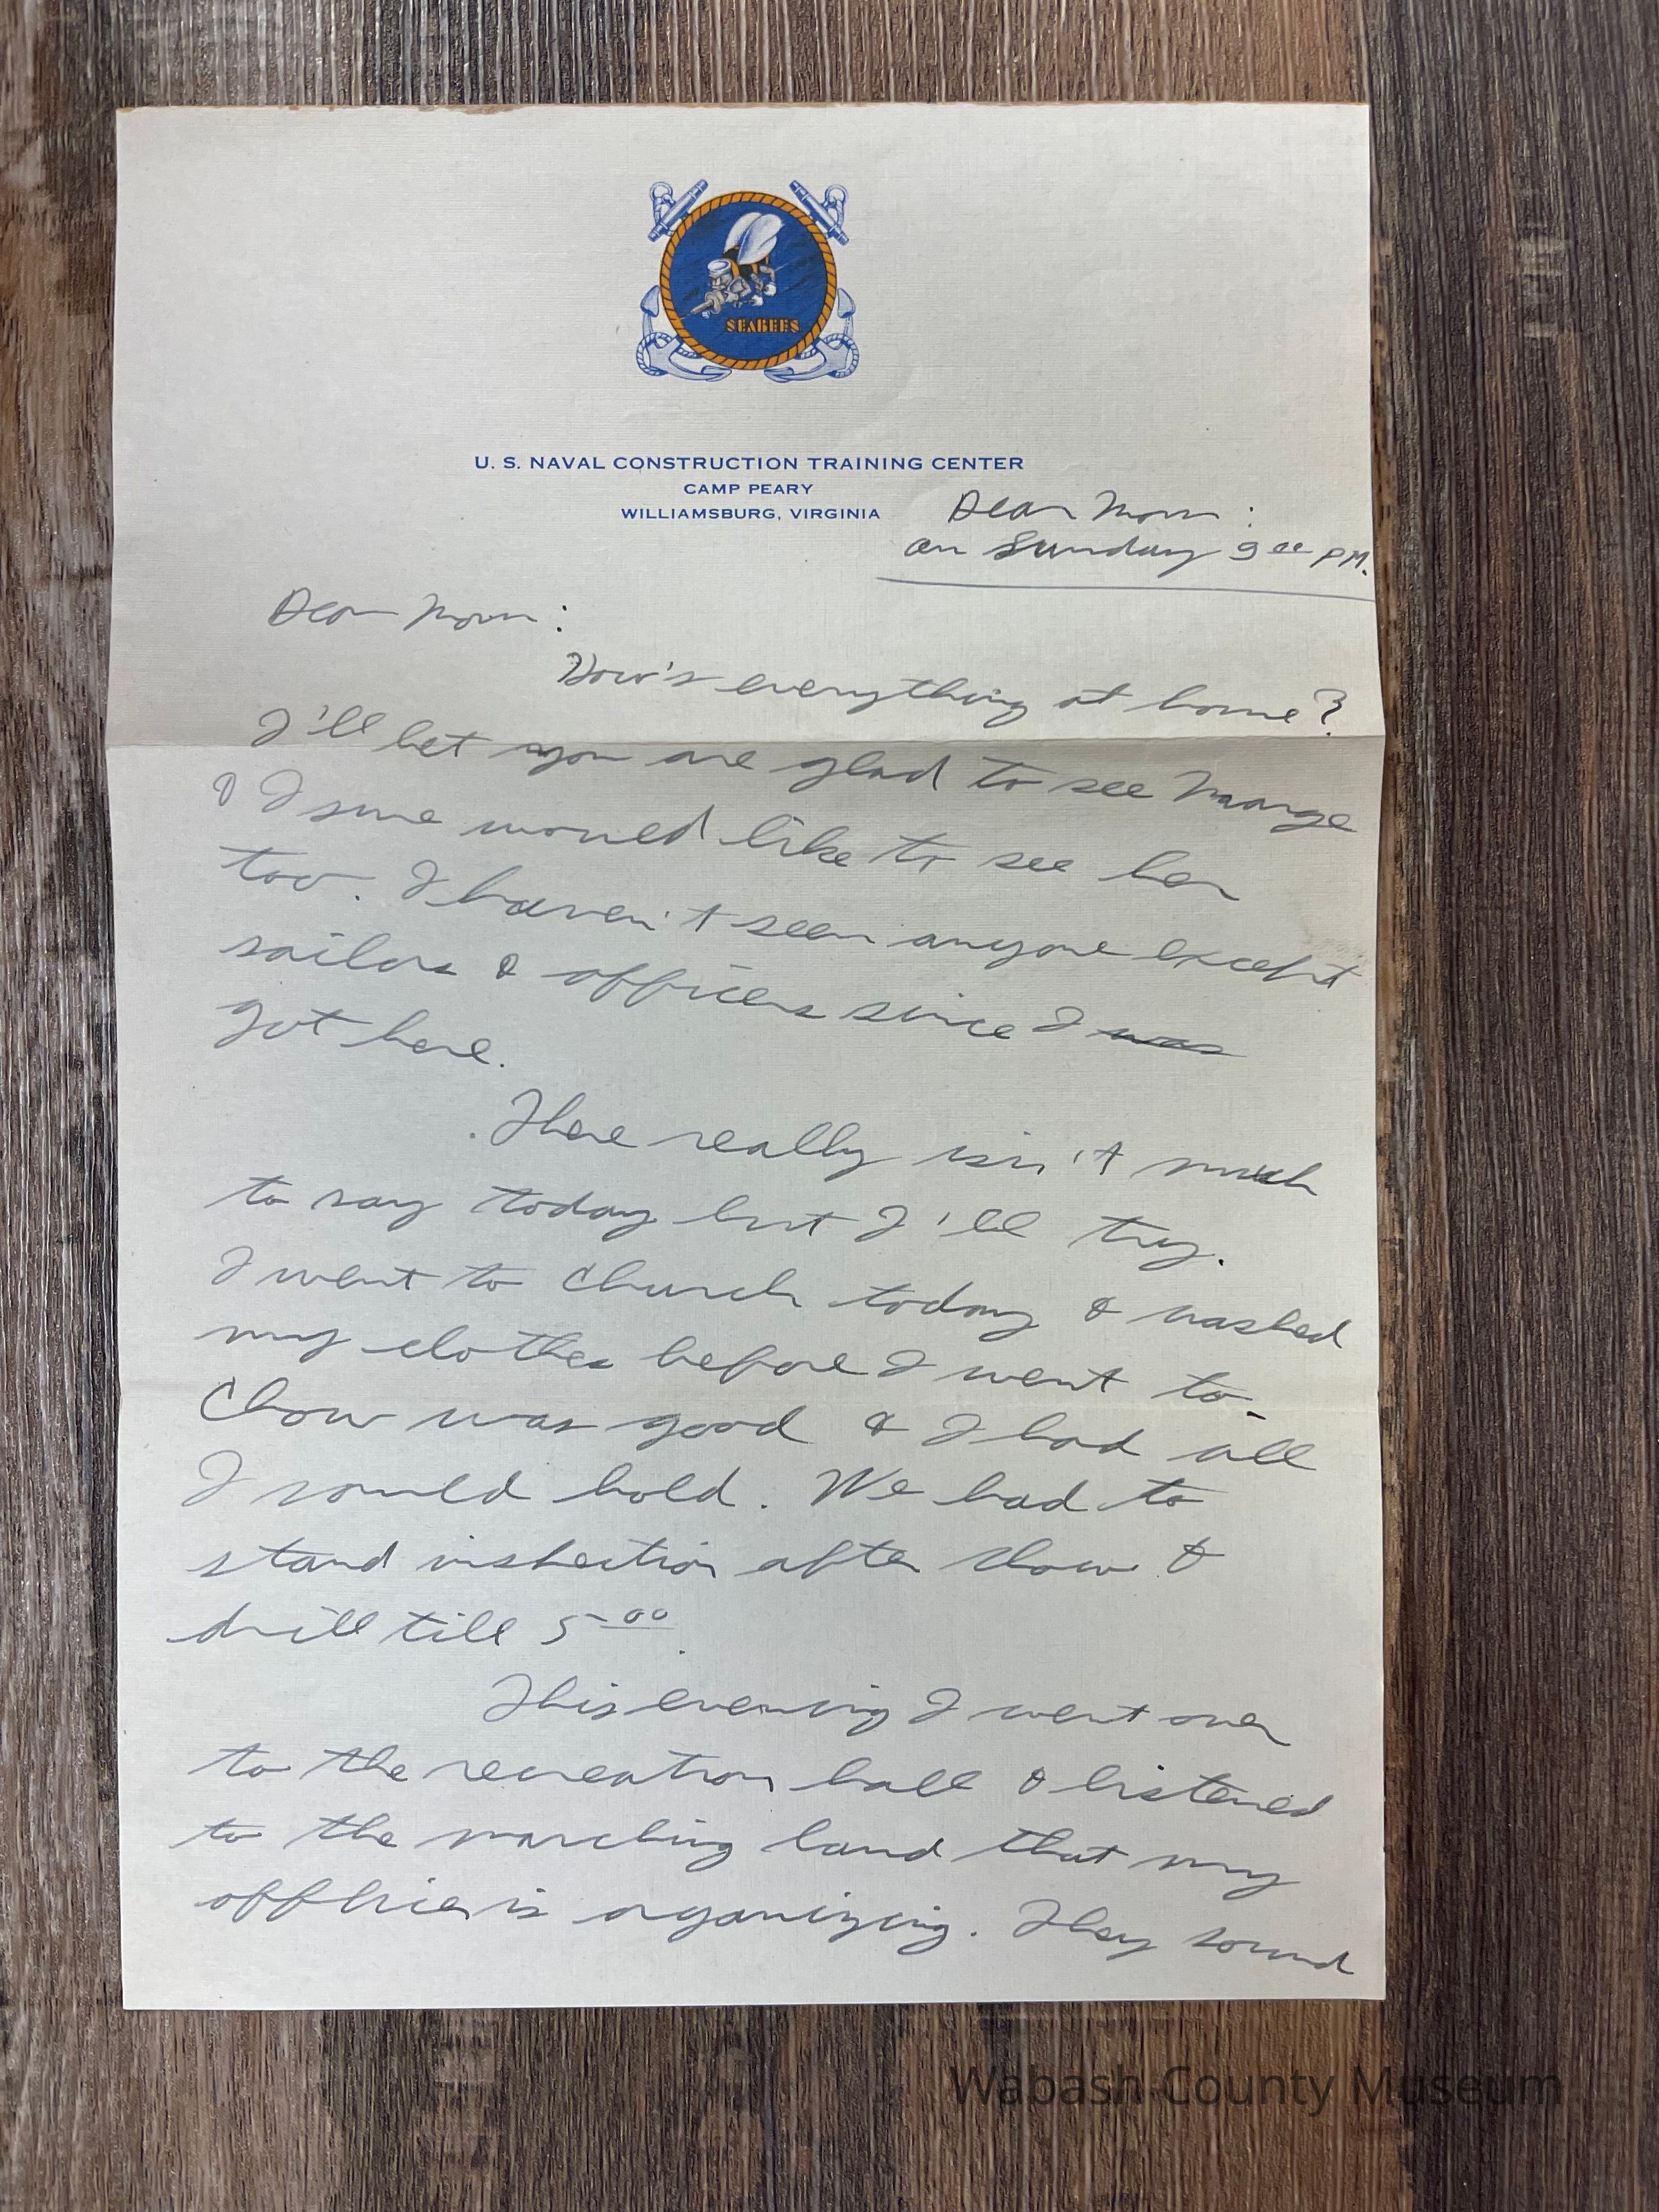 SEABEES
U. S. NAVAL CONSTRUCTION TRAINING CENTER
CAMP PEARY
WILLIAMSBURG, VIRGINIA
Dear Mom:
on Sunday 9 00 PM.
Dear Mom:
How's everything at home?
I'll bet you are glad to see Marge
& I sure would like to see her
too. I haven't seen anyone except
sailors & officers since I was
got here.
There really isn't much
to say today but I'll try.
I went to church today & washed
my clothes before I went to.
Chow was good & I had all
I could hold. We had to
stand inspection after chow &
drill till 5 00.
This evening I went over
to the recreation hall & listened
to the marching band that my
officer is organizing. They sound
Wabash County Museum